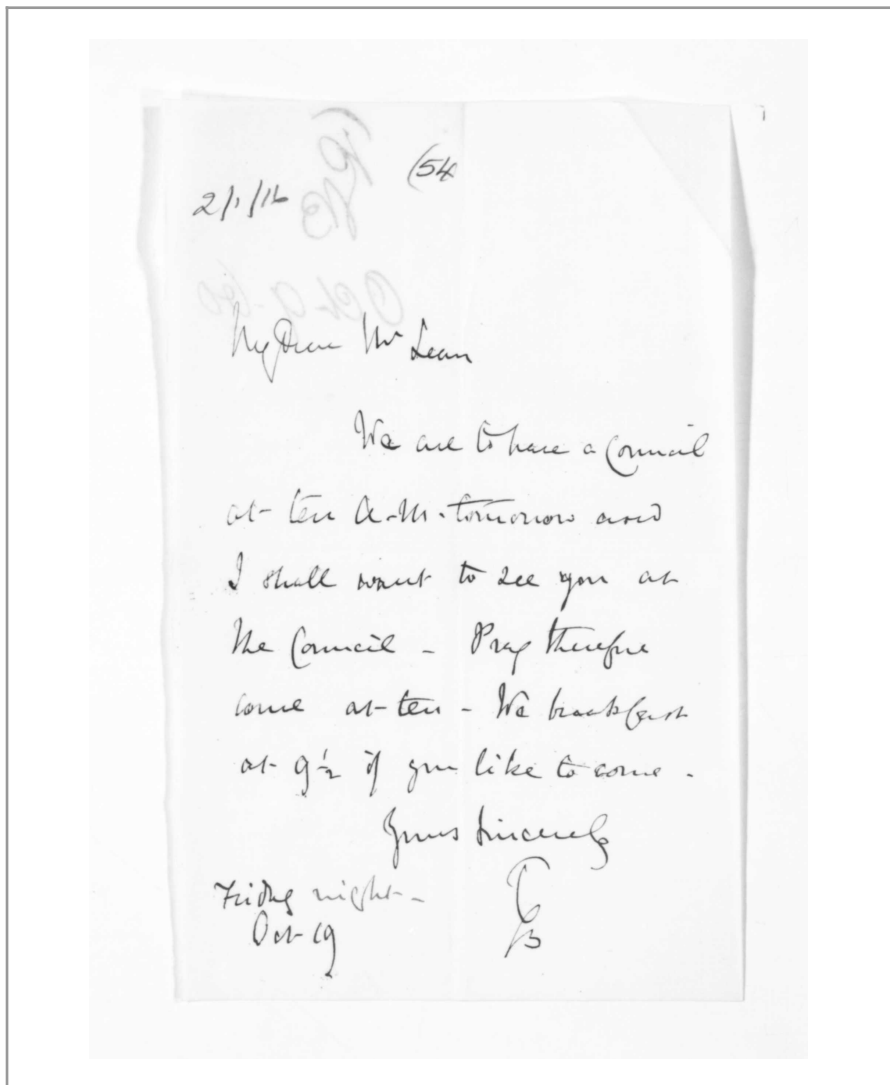 2/1/16
(54
My Dear Mr Lean
We are to have a Council
at ten A.M. tomorrow and
I shall want to see you at
the Council - Pray therefore
come at ten - We breakfast
at 9½ if you like to come.
Yours Sincerely
Friday night -
Oct 19
B